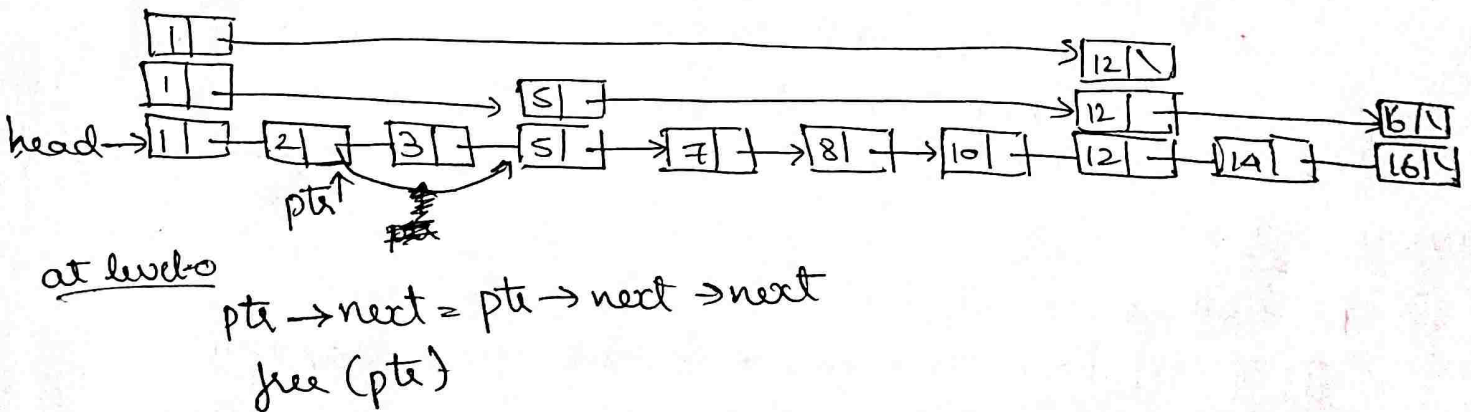 1 12
1 5 12 16
head→ 1 2 3 5 7 8 10 12 14 16
ptr↑
at level-0
ptr → next = ptr → next → next
free (ptr)